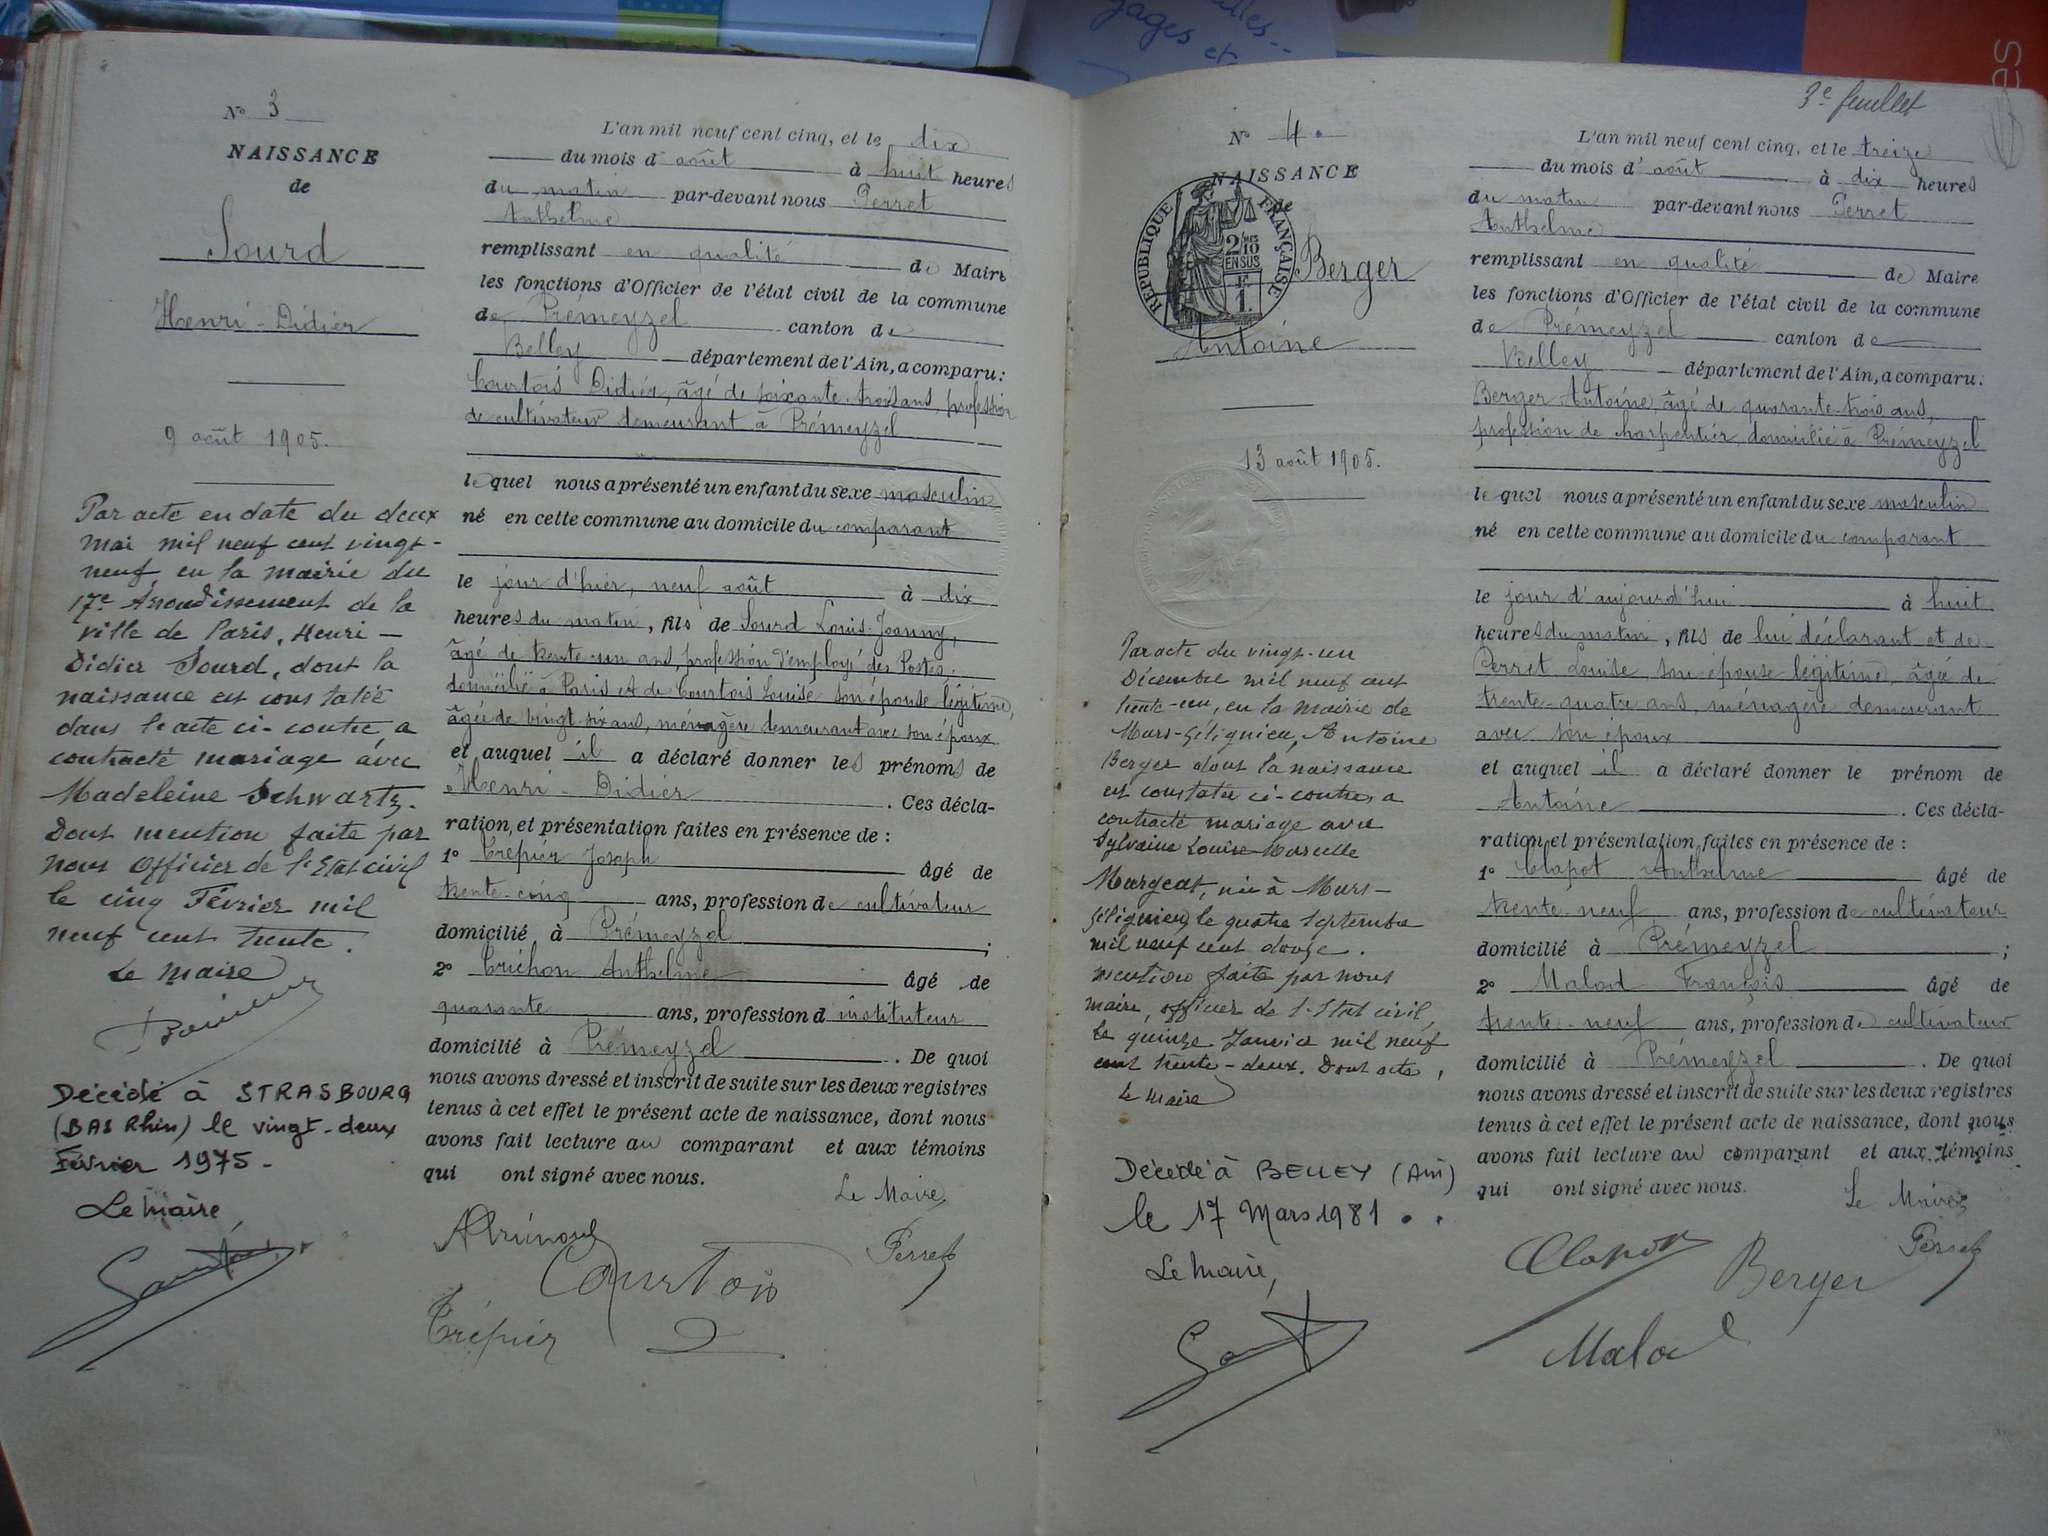 ages et
es
N° 3
NAISSANCE
de
Sourd
Henri-Didier
9 août 1905.
Par acte en date du deux
mai mil neuf cent vingt-
neuf, en la mairie du
17e Arrondissement de la
ville de Paris, Henri-
Didier Sourd, dont la
naissance est constatée
dans l'acte ci-contre, a
contracté mariage avec
Madeleine Schwartz.
Dont mention faite par
nous Officier de l'Etat civil
le cinq Février mil
neuf cent trente.
Le Maire
Décédé à STRASBOURG
(BAS Rhin) le vingt-deux
Février 1975-
Le Maire,
L'an mil neuf cent cinq, et le dix
du mois d'août à huit heures
du matin par-devant nous Perret
Anthelme
remplissant en qualité de Maire
les fonctions d'Officier de l'état civil de la commune
de Prémeyzel canton de
Belley département de l'Ain, a comparu:
Courtois Didier, âgé de soixante-trois ans, profession
de cultivateur demeurant à Prémeyzel
lequel nous a présenté un enfant du sexe masculin
né en cette commune au domicile du comparant
le jour d'hier, neuf août à dix
heures du matin, fils de Sourd Louis-Joanny,
âgé de trente-un ans, profession d'employé des Postes,
domicilié à Paris et de Courtois Louise son épouse légitime,
âgée de vingt-six ans, ménagère demeurant avec son époux
et auquel il a déclaré donner les prénoms de
Henri-Didier. Ces décla-
ration et présentation faites en présence de:
1° Trépier Joseph âgé de
trente-cinq ans, profession de cultivateur
domicilié à Prémeyzel;
2° Anthelme âgé de
quarante ans, profession d'instituteur
domicilié à Prémeyzel. De quoi
nous avons dressé et inscrit de suite sur les deux registres
tenus à cet effet le présent acte de naissance, dont nous
avons fait lecture au comparant et aux témoins
qui ont signé avec nous.
Le Maire,
Courtois
Perret
Trépier
3e feuillet
N° 4.
NAISSANCE
de
RÉPUBLIQUE FRANÇAISE
2/10 EN SUS
1F
Berger
Antoine
13 août 1905.
Par acte du vingt-un
Décembre mil neuf cent
trente-un, en la mairie de
Murs-Gélignieu, Antoine
Berger dont la naissance
est constatée ci-contre, a
contracté mariage avec
Sylvaine Louise Marcelle
Murgeat, née à Murs-
Gélignieu, le quatre septembre
mil neuf cent douze.
Mention faite par nous
maire, officier de l'Etat civil,
le quinze Janvier mil neuf
cent trente-deux. Dont acte,
Le Maire
Décédé à BELLEY (Ain)
le 17 Mars 1981
Le Maire,
L'an mil neuf cent cinq, et le treize
du mois d'août à dix heures
du matin par-devant nous Perret
Anthelme
remplissant en qualité de Maire
les fonctions d'Officier de l'état civil de la commune
de Prémeyzel canton de
Belley département de l'Ain, a comparu:
Berger Antoine, âgé de quarante-trois ans,
profession de charpentier, domicilié à Prémeyzel
lequel nous a présenté un enfant du sexe masculin
né en cette commune au domicile du comparant
le jour d'aujourd'hui à huit
heures du matin, fils de lui déclarant et de
Perret Louise, son épouse légitime, âgée de
trente-quatre ans, ménagère demeurant
avec son époux
et auquel il a déclaré donner le prénom de
Antoine. Ces décla-
ration et présentation faites en présence de:
1° Clapot Anthelme âgé de
trente-neuf ans, profession de cultivateur
domicilié à Prémeyzel;
2° Malod François âgé de
trente-neuf ans, profession de cultivateur
domicilié à Prémeyzel. De quoi
nous avons dressé et inscrit de suite sur les deux registres
tenus à cet effet le présent acte de naissance, dont nous
avons fait lecture au comparant et aux témoins
qui ont signé avec nous.
Le Maire,
Clapot
Berger
Perret
Malod